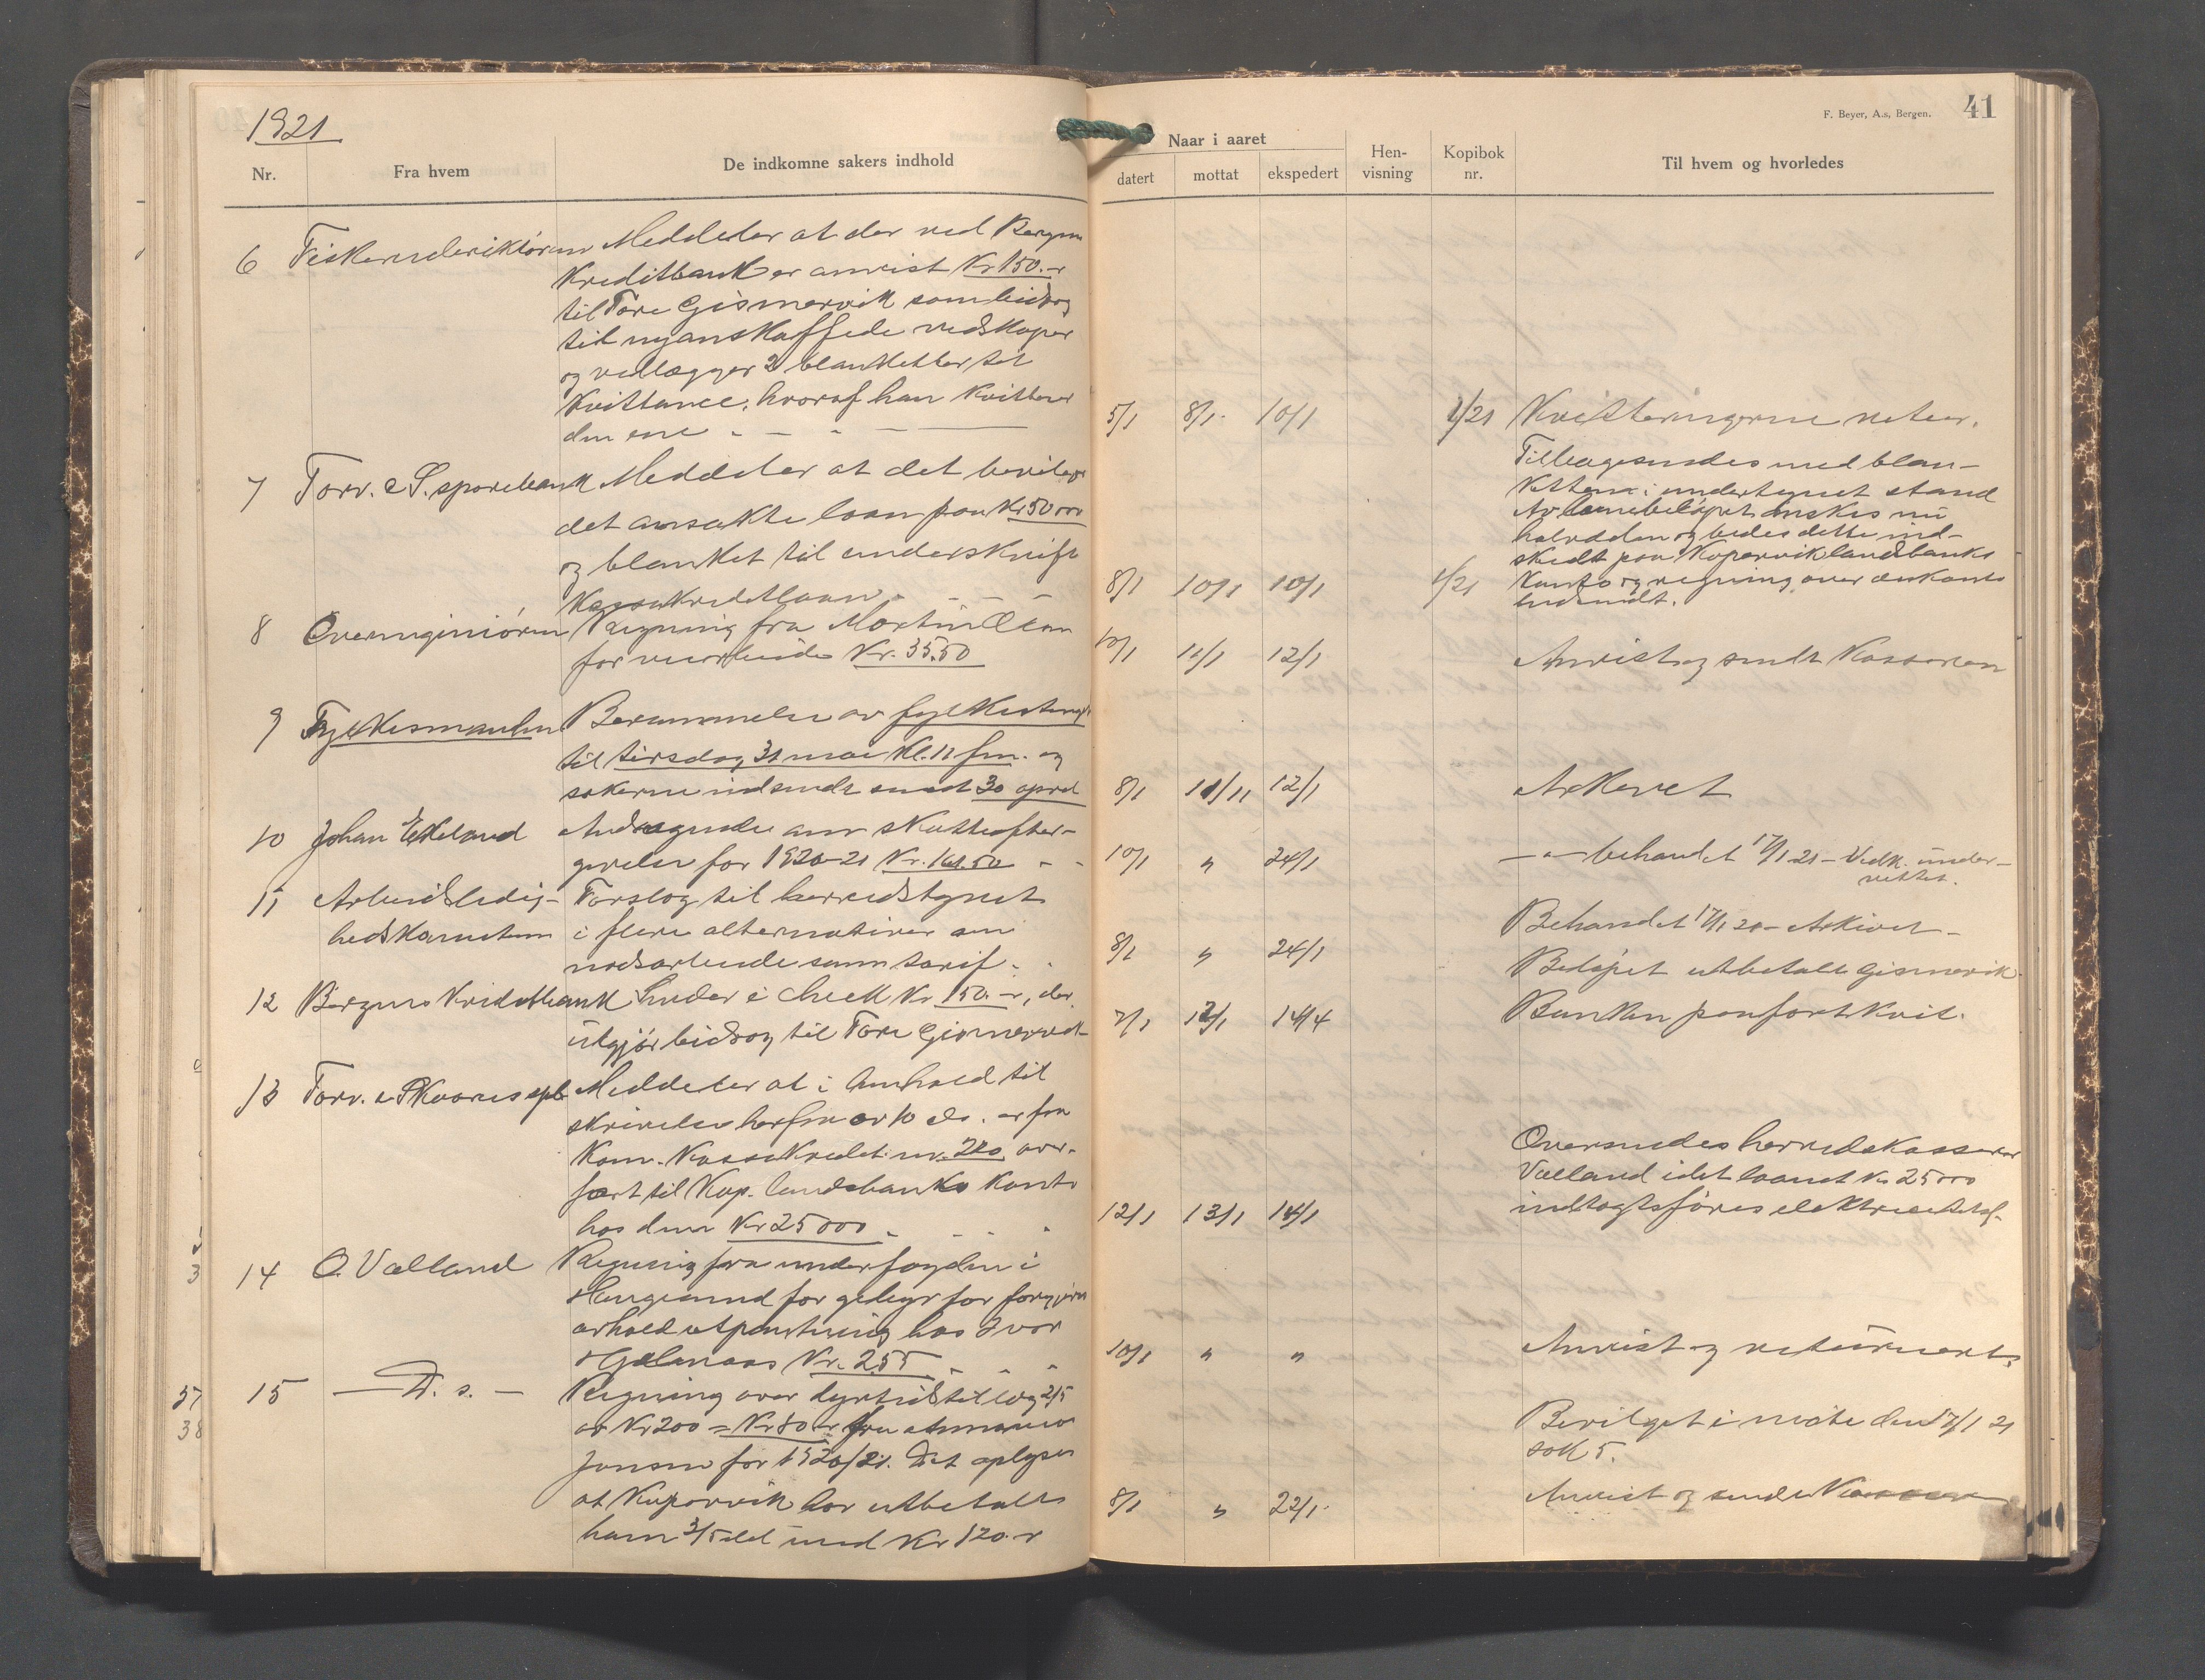 1921
Nr.
Fra hvem
De indkomne sakers indhold
6 Fiskeridirektøren Meddeler at der ved Bergens
Kreditbank er anvist Kr 150.-
til Tore Gismervik som bidrag
til nyanskaffede redskaper
og vedlægger 2 blanketter til
Kvittance, hvoraf han kvitterer
den ene
7 Torv. & S. sparebank Meddeler at det bevilger
det ansøkte laan paa Kr 50000
og blanket til underskrift
Kassakreditlaan
8 Overingeniøren Regning fra Martin Olsen
for Kr. 35.50
9 Fylkesmanden Berammelse av fylkesting
til tirsdag 31 mai kl. 11 fm. og
sakerne indsendt inden 30 april
10 Johan Ekeland Andragende om skatteefter-
givelse for 1920-21 Kr. 161.50
11 Arbeidsledig- Forslag til herredstyret
hedskomiteen i flere alternativer om
nødsarbeide samt tarif
12 Bergens Kreditbank Sender i check Kr 150.-, der
utgjør bidrag til Tore Gismervik
13 Torv. & Skaares spb. Meddeler at i henhold til
skrivelse herfra av 10 ds. er fra
Kom. Kassakredit nr. 220 over-
ført til Kop. landsbanks konto
hos dem Kr 25000
14 O. Valland Regning fra underfogden i
Haugesund for gebyr for forgjæves
avhold utpantning hos Ivar
Kr. 2.55
15 D. s. Regning over dyrtidstillæg 2/5
av Kr 200 = Kr 80.- fra
Jensen for 1920/21. Det oplyses
at Kopervik har utbetalt
ham 3/5 del med Kr 120.-
57
38
F. Beyer, A.s, Bergen.
41
Naar i aaret
datert
mottat
ekspedert
Hen-
visning
Kopibok
nr.
Til hvem og hvorledes
5/1 8/1 10/1 1/21 Kvitteringerne retur.
Tilbagesendes med blan-
ketten i undertegnet stand
Av laanebeløpet ønskes nu
halvdelen og bedes dette ind-
skudt paa Kopervik landsbanks
8/1 10/1 10/1 1/21 Konto og regning over
indsendt.
10/1 11/1 12/1 Anvist og sendt Kassereren
8/1 11/11 12/1 Arkivet
10/1 " 24/1 behandlet 17/1 21 - Vedk. under-
rettet.
8/1 " 24/1 Behandlet 17/1 20 - Arkivet
Beløpet utbetalt Gismervik
7/1 12/1 14/4 Banken paaført kvit.
Oversendes herredskasserer
Valland idet laanet Kr 25000
12/1 13/1 14/1 indtægtsføres
10/1 " " Anvist og returnert
Bevilget i møte den 17/1 21
sak 5.
8/1 " 22/1 Anvist og sendt Kasserer